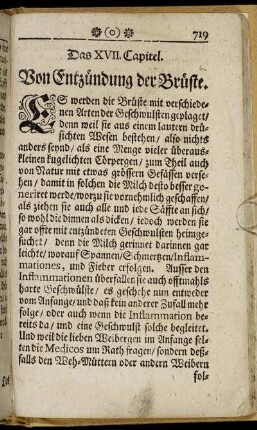 719
Das XVII. Capitel.
Von Entzündung der Brüste.
ES werden die Brüste mit verschiede-
nen Arten der Geschwulsten geplaget/
denn weil sie aus einem lautern drü-
sichten Wesen bestehen/ also nichts
anders seynd/ als eine Menge vieler überaus
kleinen kugelichten Cörpergen/ zum Theil auch
von Natur mit etwas grössern Gefässen verse-
hen/ damit in solchen die Milch desto besser ge-
neriret werde/ worzu sie vornehmlich geschaffen/
als ziehen sie auch alle und jede Säffte an sich/
so wohl die dinnen als dicken/ jedoch werden sie
gar offte mit entzündeten Geschwulsten heimge-
suchet/ denn die Milch gerinnet darinnen gar
leichte/ worauf Spannen/ Schmertzen/ Inflam-
mationes, und Fieber erfolgen. Ausser den
Inflammationen überfallen sie auch offtmahls
harte Geschwülste/ es geschehe nun entweder
vom Anfange/ und daß kein anderer Zufall mehr
folge/ oder auch wenn die Inflammation be-
reits da/ und eine Geschwulst solche begleitet.
Und weil die lieben Weibergen im Anfange sel-
ten die Medicos um Rath fragen/ sondern deß-
falls den Weh-Müttern oder andern Weibern
fol-